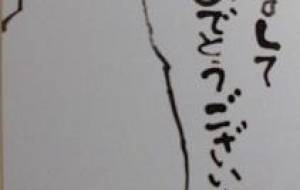 して
でとうござい